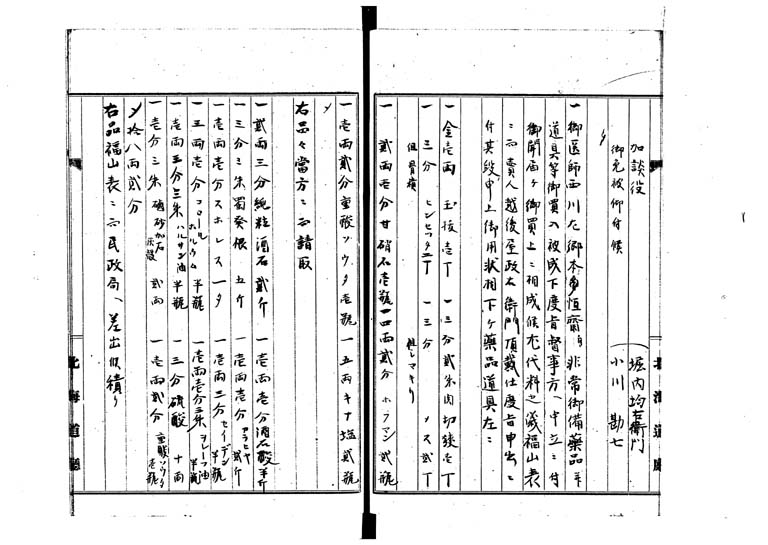 加談役
御免被仰付候
堀内均右衛門
小川勘七
一御医師西川 御本 恒齋ゟ非常御備薬品并
道具等御買入被成下度旨督事方ヘ申立ニ付
御開届ケ御買上ニ相成候尤代料之儀福山表
ニ而賣人越後屋政右衛門頂戴仕度旨申出ニ
付其段申上御用状相下ケ薬品道具左ニ
一金壱両 壱丁 一三分弐朱肉切鋏壱丁
一三分 ヒンセツタ二丁 一三分 メス弐丁
一弐両壱分甘硝石壱瓶 一四両弐分 ホフマン弐瓶
一壱両弐分重酸ソウタ壱瓶 一五両キナ塩弐瓶
〆
右品々當方ニ而請取
一弐両三分純粒酒石弐斤 一壱両壱分酒石酸半斤
一三分二朱蜀葵根 五斤 一壱両壱分アラヒヤ弐斤
一壱両壱分スホレス一タ 一壱両二分セイデン半瓶
一五両壱分コロールホルム半瓶 一壱両壱分三朱ヲレーフ油半瓶
一壱両五分三朱ハルサン油半瓶 一三分硫酸 十両
一壱分二朱 砂加石 弐両 一壱両弐分重酸ソウタ壱瓶
〆拾八両弐分
右品福山表ニ而民政局ヘ差出候積り
北海道廳
北海道廳